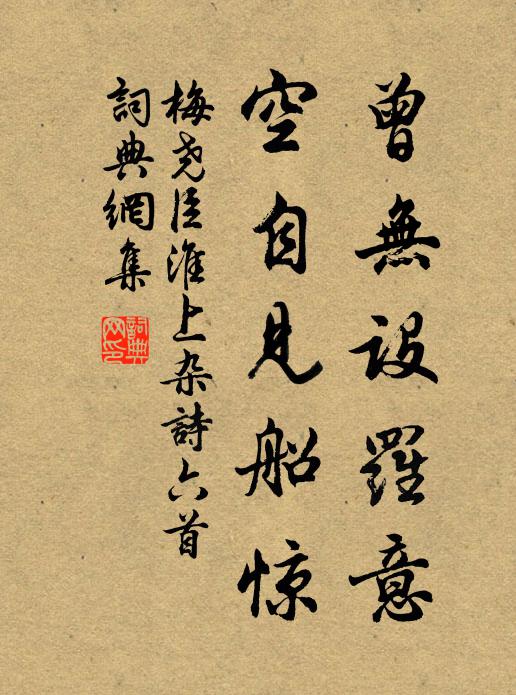 曾無設羅意
空自見船惊
梅尧臣淮上杂詩六首
詞典網集
詞典网印